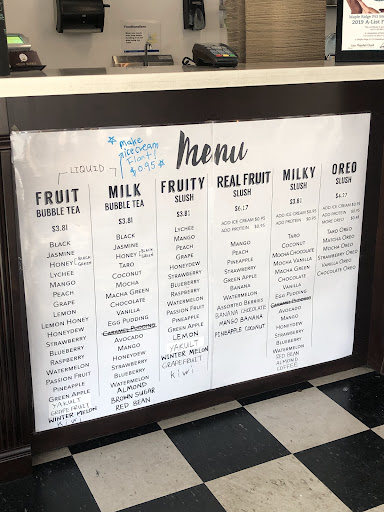 2019 A-List
Make
ice cream
Float!
$0.95
Menu
LIQUID
FRUIT
BUBBLE TEA
$3.81
BLACK
JASMINE
HONEY - BLACK GREEN
LYCHEE
MANGO
PEACH
GRAPE
LEMON
LEMON HONEY
HONEYDEW
STRAWBERRY
BLUEBERRY
RASPBERRY
WATERMELON
PASSION FRUIT
PINEAPPLE
GREEN APPLE
YAKULT
GRAPEFRUIT
WINTER MELON
Kiwi
MILK
BUBBLE TEA
$3.81
BLACK
JASMINE
HONEY - BLACK GREEN
TARO
COCONUT
MOCHA
MACHA GREEN
CHOCOLATE
VANILLA
EGG PUDDING
CARAMEL PUDDING
AVOCADO
MANGO
HONEYDEW
STRAWBERRY
BLUEBERRY
WATERMELON
ALMOND
BROWN SUGAR
RED BEAN
FRUITY
SLUSH
$3.81
LYCHEE
MANGO
PEACH
GRAPE
HONEYDEW
STRAWBERRY
BLUEBERRY
RASPBERRY
WATERMELON
PASSION FRUIT
PINEAPPLE
GREEN APPLE
LEMON
YAKULT
WINTER MELON
GRAPEFRUIT
Kiwi
REAL FRUIT
SLUSH
$6.17
ADD ICE CREAM $0.95
ADD PROTEIN $0.95
MANGO
PEACH
PINEAPPLE
STRAWBERRY
GREEN APPLE
BANANA
WATERMELON
ASSORTED BERRIES
BANANA CHOCOLATE
MANGO BANANA
PINEAPPLE COCONUT
MILKY
SLUSH
$3.81
ADD ICE CREAM $0.95
ADD PROTEIN $0.95
TARO
COCONUT
MOCHA
MOCHA VANILLA
MACHA GREEN
CHOCOLATE
VANILLA
EGG PUDDING
CARAMEL PUDDING
AVOCADO
MANGO
HONEYDEW
STRAWBERRY
BLUEBERRY
WATERMELON
RED BEAN
ALMOND
COFFEE
OREO
SLUSH
$6.17
ADD ICE CREAM $0.95
ADD PROTEIN $0.95
MORE OREO $0.95
TARO OREO
MATCHA OREO
MOCHA OREO
STRAWBERRY OREO
VANILLA OREO
CHOCOLATE OREO